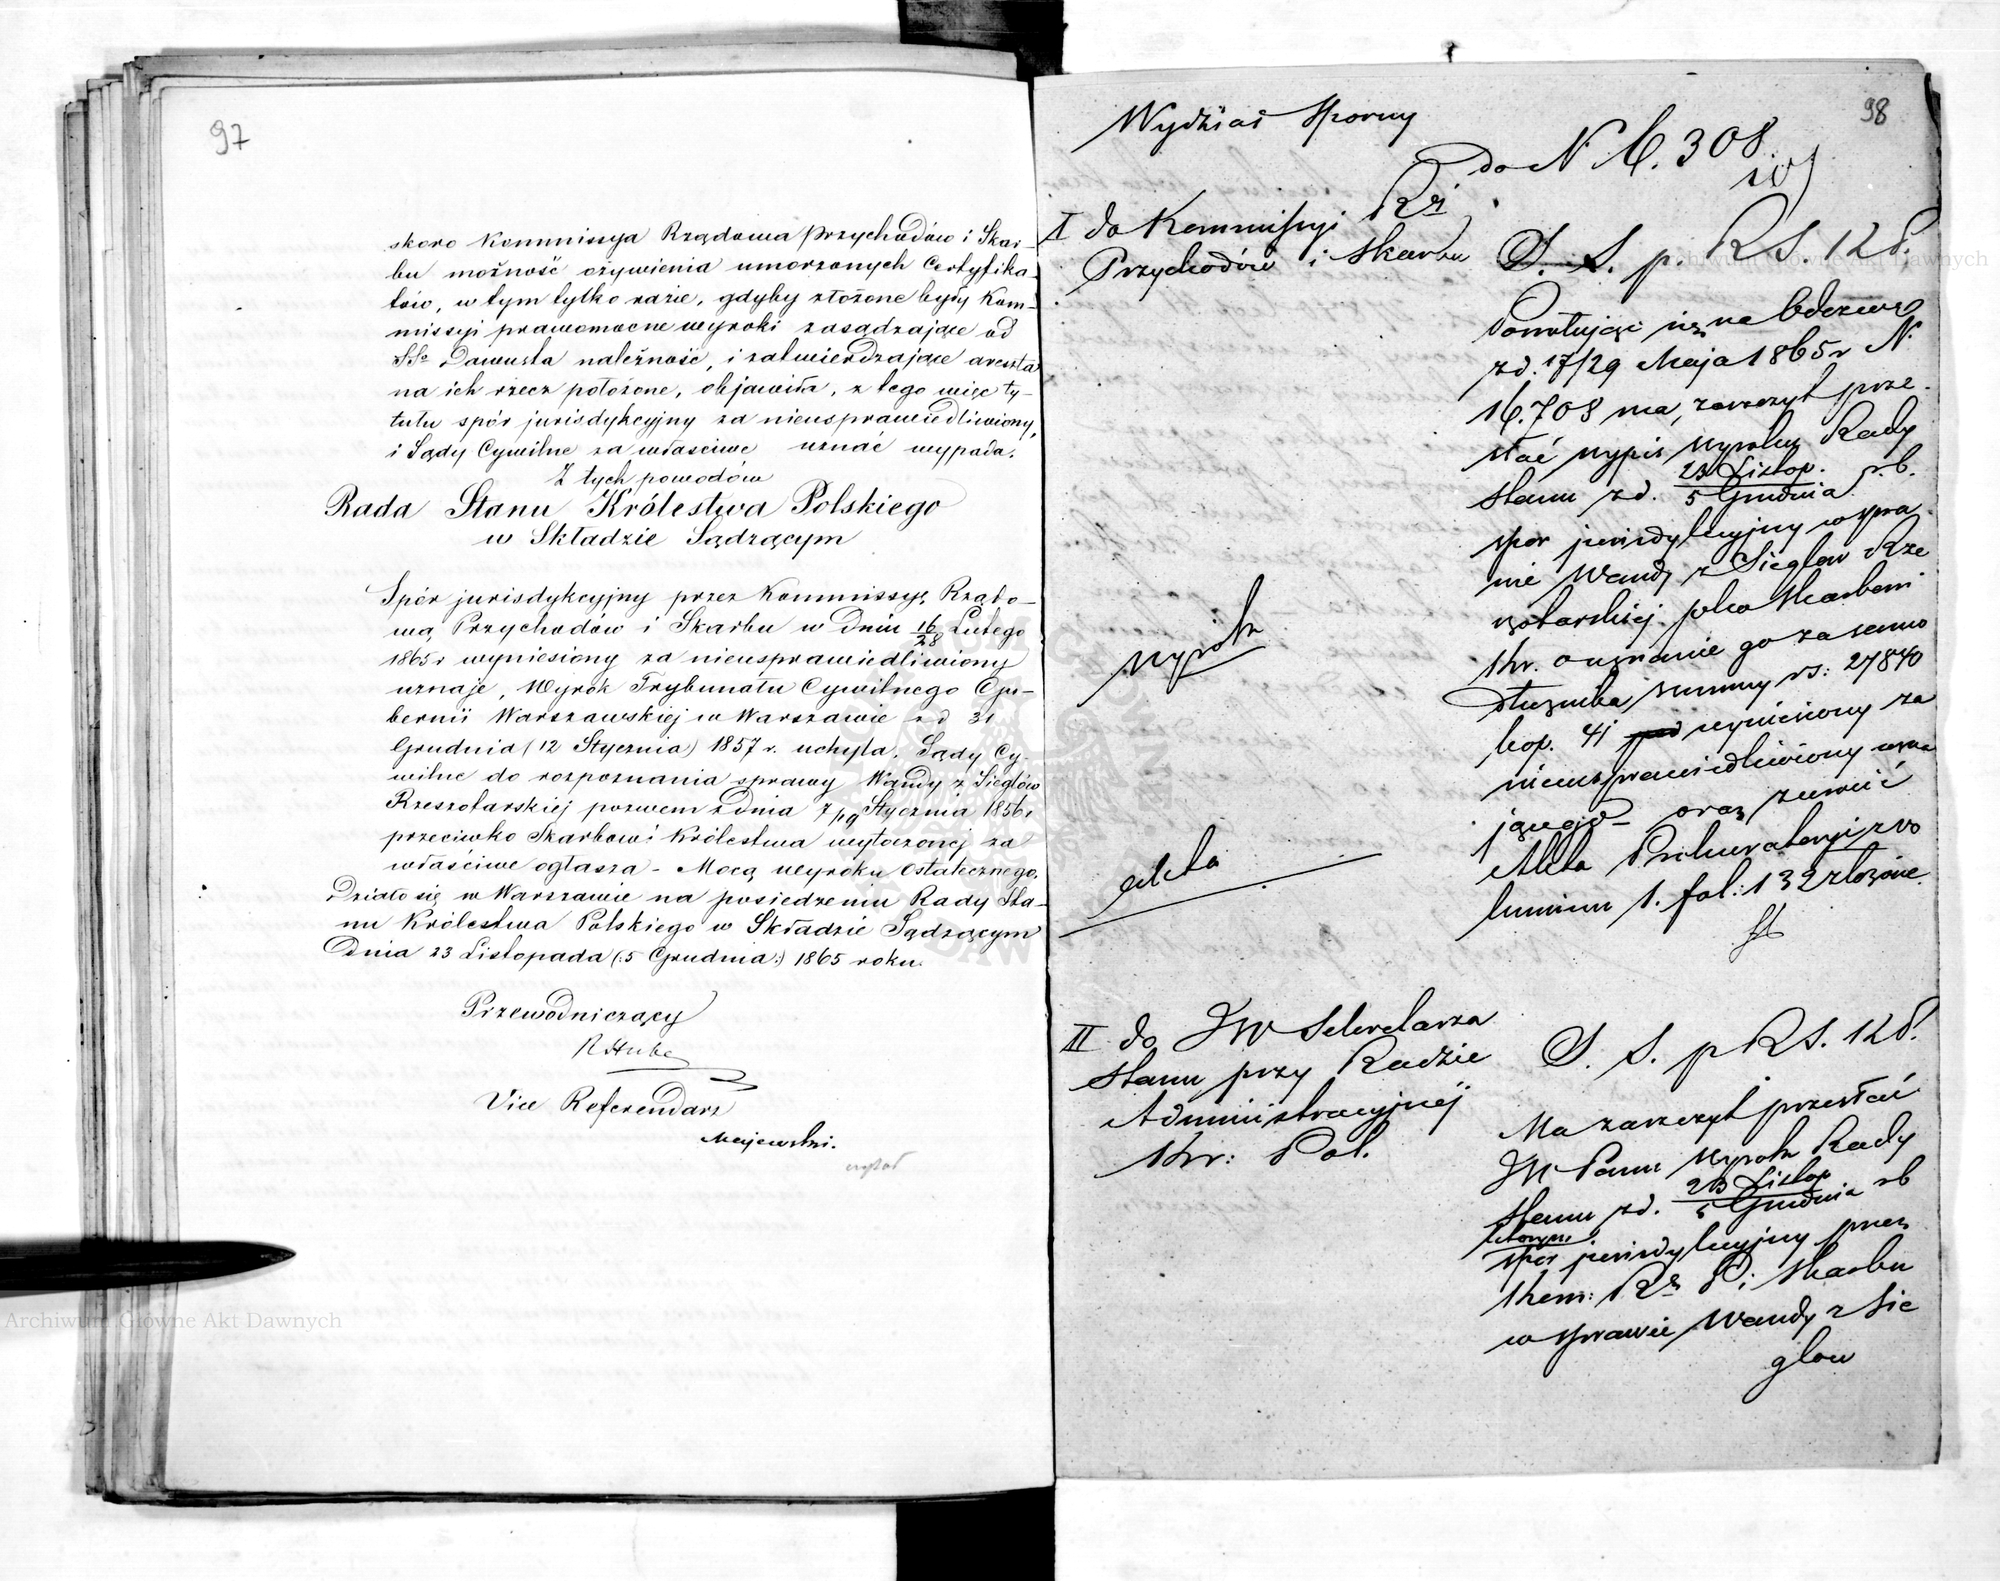 97
skoro Kommissya Rządowa Przychodów i Skar-
bu możność ożywienia umorzonych Certyfika-
tów, w tym tylko razie, gdyby złożone były Kom-
missyi prawomocne wyroki zasądzające od
SSo Dawusta należność, i zatwierdzające areszta
na ich rzecz położone, objawiła, z tego więc ty-
tułu spór jurisdykcyjny za nieusprawiedliwiony,
i Sądy Cywilne za właściwe uznać wypada.
Z tych powodów
Rada Stanu Królestwa Polskiego
w Składzie Sądzącym
Spór jurisdykcyjny przez Kommissyę Rządo-
wą Przychodów i Skarbu w dniu 16/28 Lutego
1865 r wyniesiony za nieusprawiedliwiony
uznaje, Wyrok Trybunału Cywilnego Gu-
bernii Warszawskiej w Warszawie z d 31
Grudnia (12 Stycznia) 1857 r. uchyla, Sądy Cy-
wilne do rozpoznania sprawy Wandy z Sieglów
Rzeszotarskiej pozwem z dnia 7/19 Stycznia 1856 r
przeciwko Skarbowi Królestwa wytoczonej za
właściwe ogłasza - Mocą wyroku Ostatecznego.
Działo się w Warszawie na posiedzeniu Rady Sta-
nu Królestwa Polskiego w Składzie Sądzącym
Dnia 23 Listopada (:5 Grudnia:) 1865 roku.
Przewodniczący
R Hube
Vice Referendarz
Majewski.
czytał
98
Wydział Sporny
do N 6.308
I do Kommissyi Rz
Przychodów i Skarbu
S. S. p. RS. 12 d.
Powołując się na Odezwę
z d. 17/29 Maja 1865 r N.
16.708 ma, zaszczyt prze-
słać wypis wyroku Rady
Stanu z d. 23 Listop. / 5 Grudnia r. b.
spór jurisdykcyjny w spra-
wie Wandy z Sieglów Rze
szotarskiej jako Skarbowi
Kr. o uznanie go za samo
dłużnika summy rs: 27840
kop. 41 wyniesiony za
nieusprawiedliwiony uzna
jącego - oraz zwrócić
Akta Prokuratoryi w vo
luminie 1. fol: 132 złożone.
wyrok
akta
II do JW Sekretarza
Stanu przy Radzie
Administracyjnej
Kr: Pol.
S. S. p RS. 12 d.
Ma zaszczyt przesłać
JW Panu wyrok Rady
Stanu z d. 23 Listop / 5 Grudnia r b
którym
spór jurisdykcyjny przez
Kom: Rz P. i Skarbu
w sprawie Wandy z Sie
glów
Archiwum Główne Akt Dawnych
Archiwum Główne Akt Dawnych